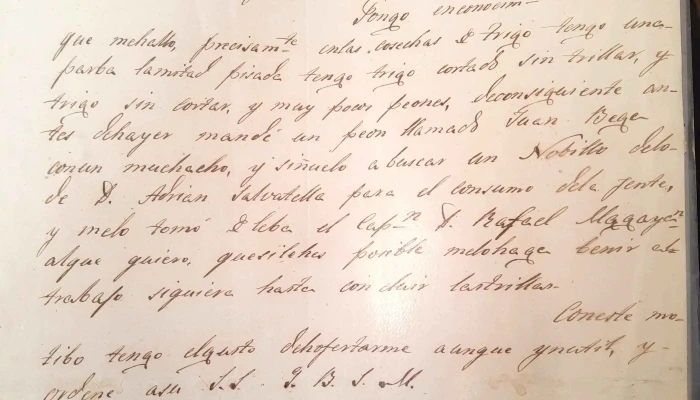 Pongo enconocim-
que mehallo, precisamte enlas cosechas de trigo tengo una
parba lamitad pisada tengo trigo cortado sin trillar, y
trigo sin cortar, y muy pocos peones, deconsiguiente an-
tes dehayer mandé un peon llamado Juan Bega
conun muchacho, y siñuelo abuscar un Nobillo delo-
de D. Adrian Salvatella para el consumo dela jente,
y melo tomó de leba el Capn D. Rafael
alque quiero, quesilehes posible melohaga benir al
trabajo siquiera hasta concluir lastrillas.
Coneste mo-
tibo tengo elgusto dehofertarme aunque ynutil, y-
ordene asu S. S. Q. B. S. M.